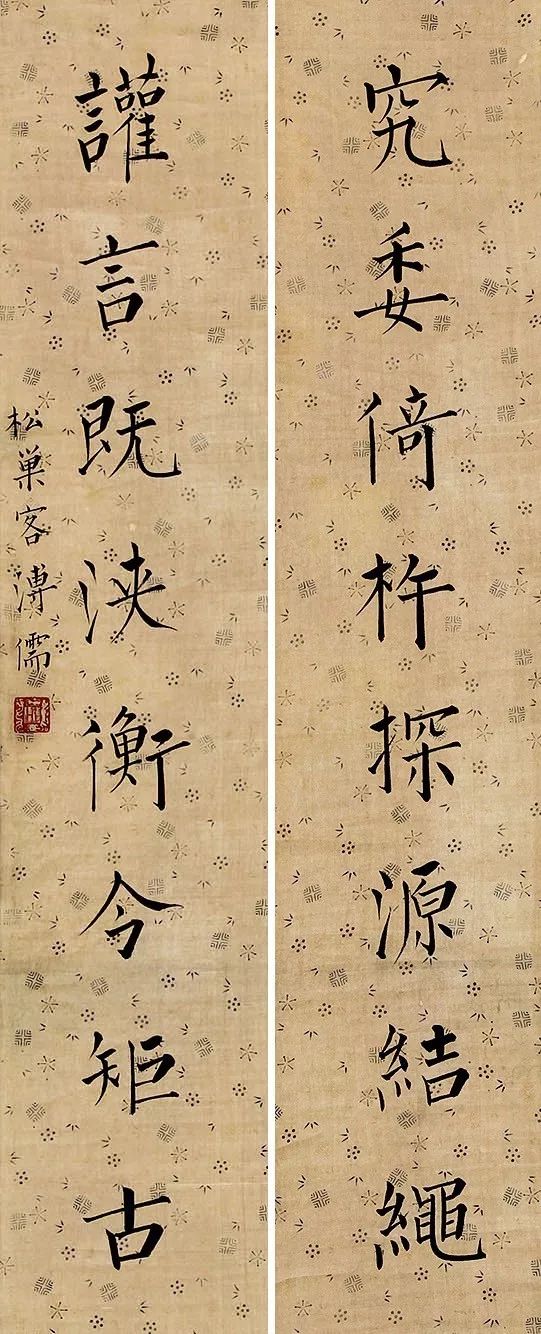 究委倚杵探源結繩
讙言既浹衡今矩古
松巢客溥儒